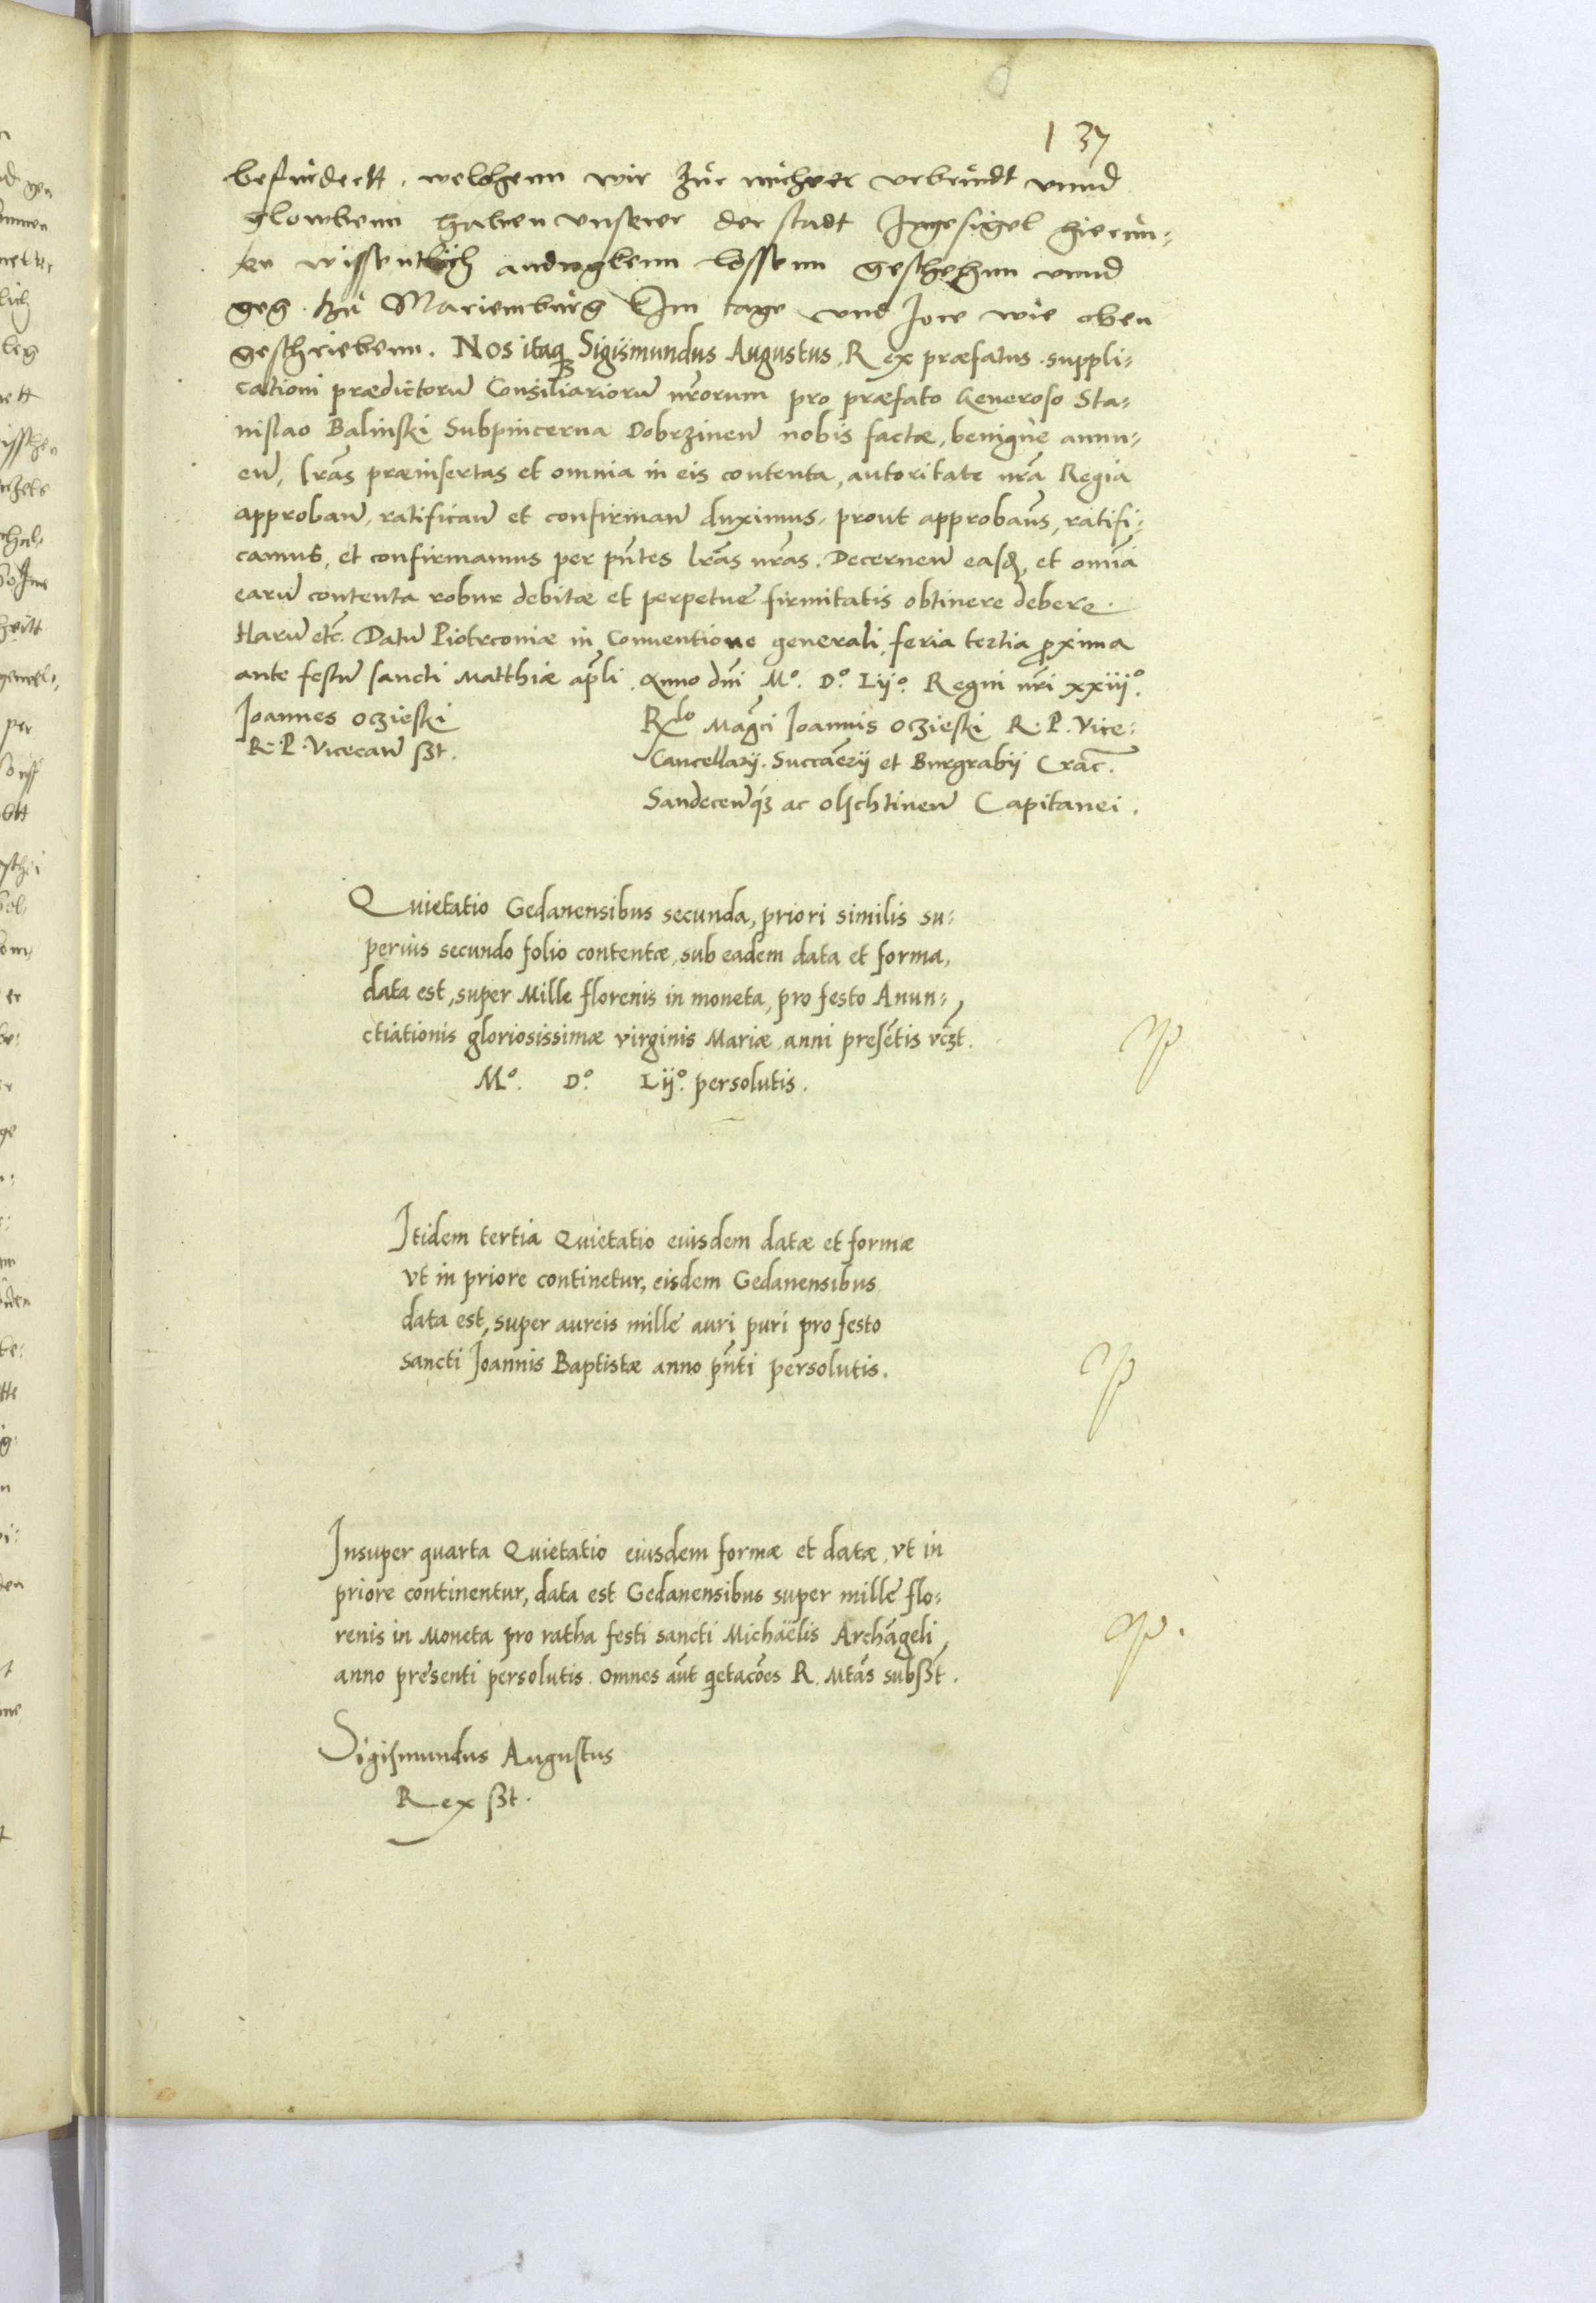 137
befürdertt, welchenn wir zur nicherer urkundt unnd
glowbenn haben unserer der stadt Ingesigel hierun⸗
ter wissentlich andrugkenn lossenn geschehnn unnd
geg. zu Mariemburg Am tage und Jore wie oben
geschriebenn. Nos itaq Sigismundus Augustus Rex præfatus suppli⸗
cationi prædictorū Consiliariorū nr̄orum pro præfato Generoso Sta⸗
nislao Balinski Subpincerna Dobrzinen̄ nobis factæ, benigne annu⸗
en̄, lr̄as præinsertas et omnia in eis contenta, autoritate nr̄a Regia
approban̄, ratifican̄ et confirman̄ duximus, prout approbam̄s, ratifi⸗
camus, et confirmamus per pn̄tes lr̄as nr̄as. Decernen̄ easdē, et omnia
earū contenta robur debitæ et perpetue firmitatis obtinere debere.
Harū etc̄. Datū Piotrcoviæ in Conventione generali, feria tertia proxima
ante festū sancti Matthiæ apl̄i. Anno dn̄i M.° D.° Lij.° Regni nr̄i xxiij.°
Joannes Oczieski
R. P. Vicecan̄ sst.
Rlo Maḡci Joannis Oczieski R. P. Vice⸗
Cancellarij. Succam̄erij et Burgrabij Crac̄.
Sandecen̄q3 ac Olschtinen̄ Capitanei.
Quietatio Gedanensibus secunda, priori similis su⸗
perius secundo folio contentæ, sub eadem data et forma,
data est, super Mille florenis in moneta, pro festo Anun⸗
ctiationis gloriosissimæ virginis Mariæ anni presēntis vcz̄t.
M.° D.° Lij.° persolutis.
Itidem tertia Quietatio eiusdem datæ et formæ
vt in priore continetur, eisdem Gedanensibus
data est, super aureis mille auri puri pro festo
sancti Joannis Baptistæ anno pn̄ti persolutis.
Insuper quarta Quietatio eiusdem formæ et datæ, vt in
priore continentur, data est Gedanensibus super mille flo⸗
renis in Moneta pro ratha festi sancti Michaëlis Archāgeli
anno presenti persolutis. Omnes aūt qietacōes R. Mtās subsst̄.
Sigismundus Augustus
Rex sst.